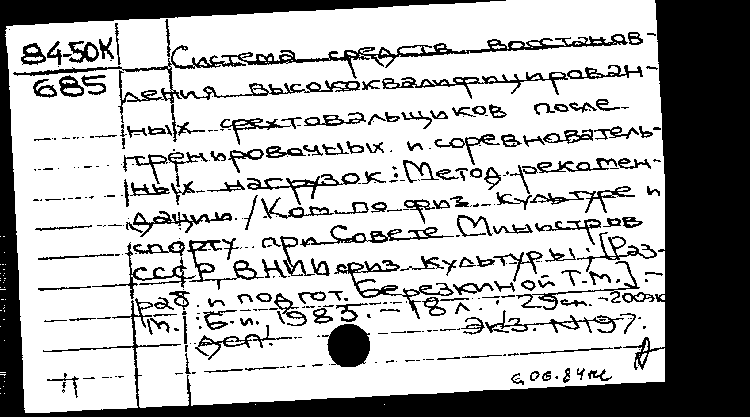 84-50К
685
Система средств восстанов-
ления высококвалифицирован-
ных фехтовальщиков после
тренировочных и соревнователь-
ных нагрузок: Метод. рекомен-
дации / Ком. по физ. культуре и
спорту при Совете Министров
СССР, ВНИИ физ. культуры; [Раз-
раб. и подгот. Березкиной Т.М.]. -
М. : Б.и., 1983. - 18 л. ; 29 см. - 200 эк
Деп. Экз. N197.
06.84